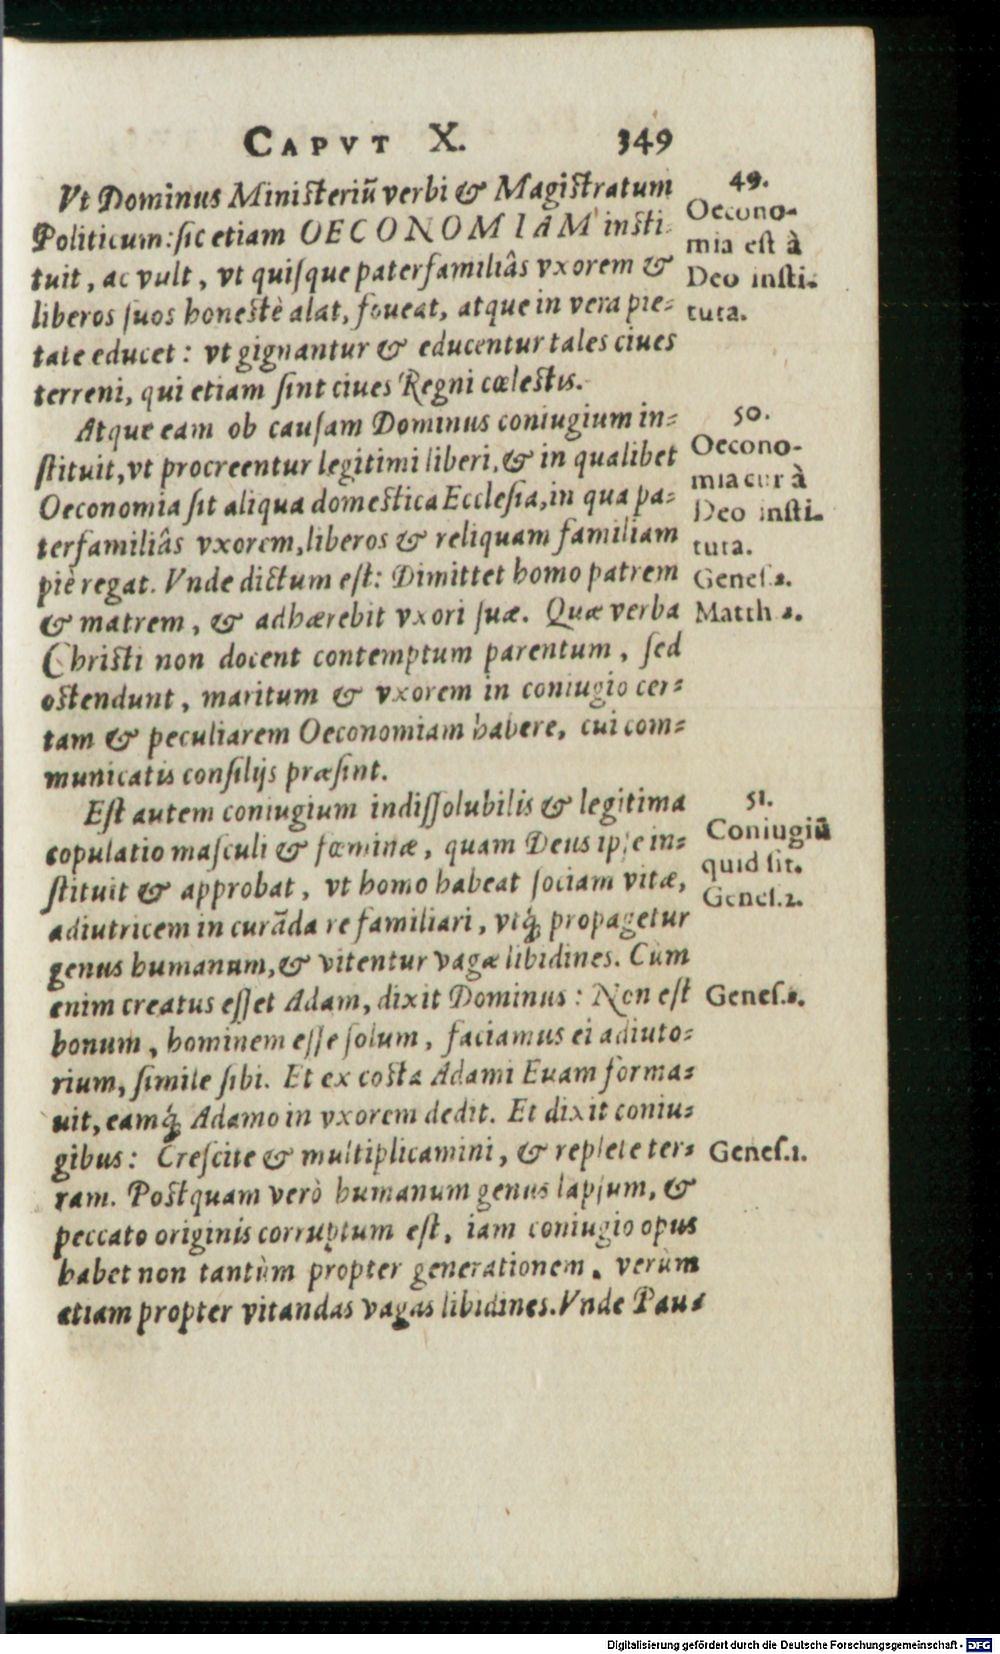 CAPVT X. 349
Vt Dominus Ministeriũ verbi & Magistratum
Politicum: sic etiam OECONOMIAM insti-
tuit, ac vult, vt quisque paterfamiliâs vxorem &
liberos suos honestè alat, foueat, atque in vera pie-
tate educet: vt gignantur & educentur tales ciues
terreni, qui etiam sint ciues Regni cœlestis.
49.
Oecono-
mia est à
Deo insti-
tuta.
Atque eam ob causam Dominus coniugium in-
stituit, vt procreentur legitimi liberi, & in qualibet
Oeconomia sit aliqua domestica Ecclesia, in qua pa-
terfamiliâs vxorem, liberos & reliquam familiam
piè regat. Vnde dictum est: Dimittet homo patrem
& matrem, & adhærebit vxori suæ. Quæ verba
Christi non docent contemptum parentum, sed
ostendunt, maritum & vxorem in coniugio cer-
tam & peculiarem Oeconomiam habere, cui com-
municatis consilijs præsint.
50.
Oecono-
mia cur à
Deo insti-
tuta.
Genes.2.
Matth
Est autem coniugium indissolubilis & legitima
copulatio masculi & fœminæ, quam Deus ipse in-
stituit & approbat, vt homo habeat sociam vitæ,
adiutricem in curãda re familiari, vtq́; propagetur
genus humanum, & vitentur vagæ libidines. Cùm
enim creatus esset Adam, dixit Dominus: Non est
bonum, hominem esse solum, faciamus ei adiuto-
rium, simile sibi. Et ex costa Adami Euam forma-
uit, eamq́; Adamo in vxorem dedit. Et dixit coniu-
gibus: Crescite & multiplicamini, & replete ter-
ram. Postquam verò humanum genus lapsum, &
peccato originis corruptum est, iam coniugio opus
habet non tantùm propter generationem, verùm
etiam propter vitandas vagas libidines. Vnde Pau-
51.
Coniugiũ
quid sit.
Genes.2.
Genes.2.
Genes.1.
Digitalisierung gefördert durch die Deutsche Forschungsgemeinschaft - DFG